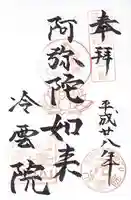 奉拝
平成廿八年
阿弥陀如来
冷雲院